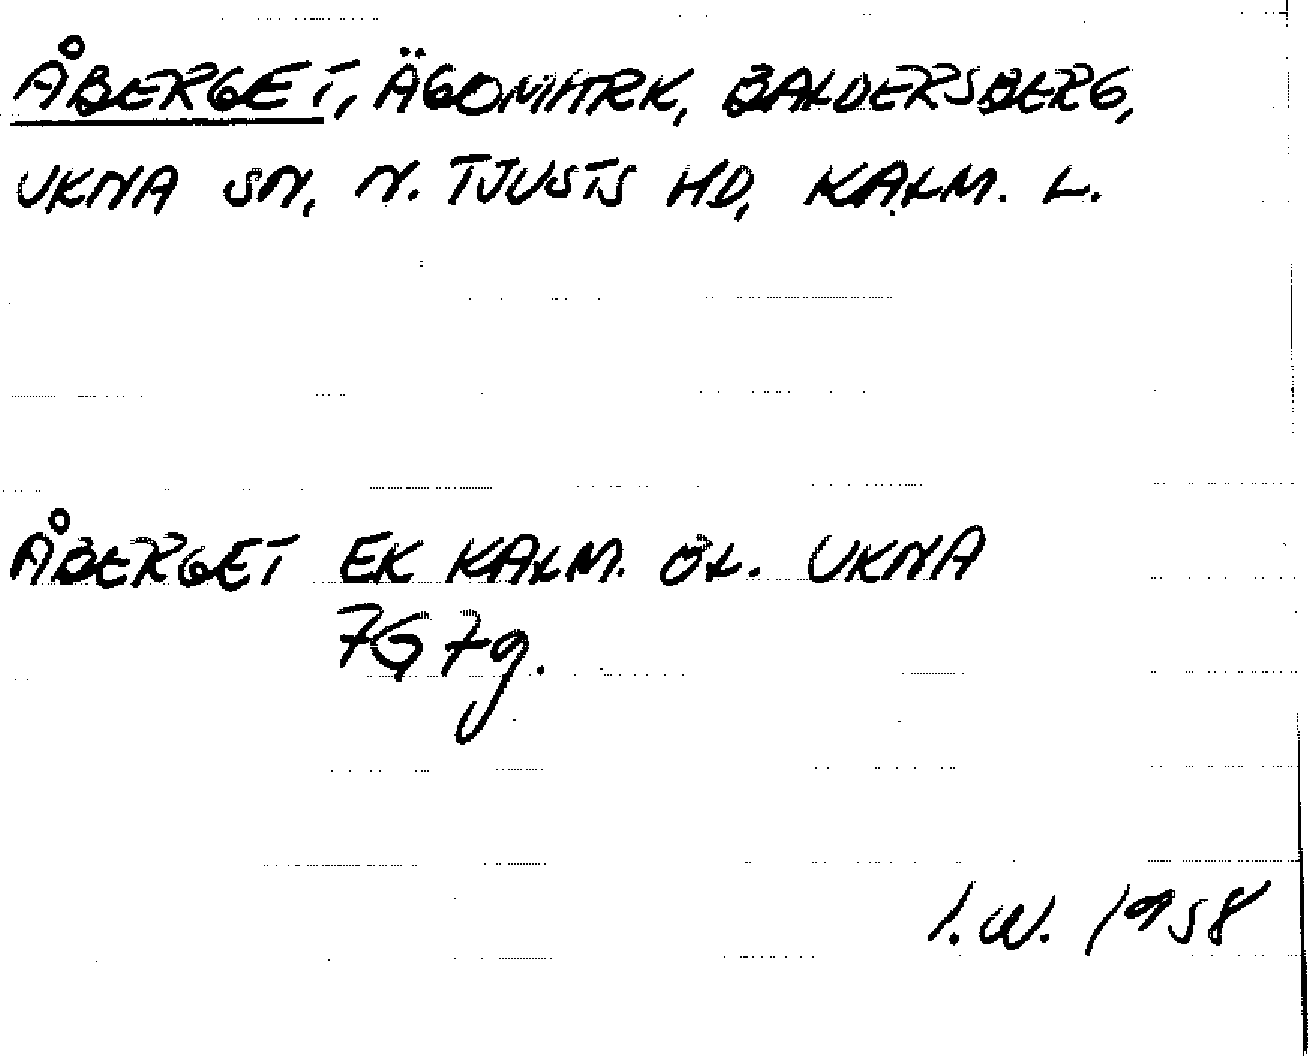 ÅBERGET, ÄGOMARK, BALDERSBERG,
UKNA SN, N. TJUSTS HD, KALM. L.
ÅBERGET EK KALM. ÖL. UKNA
7G 7g.
I.W. 1958